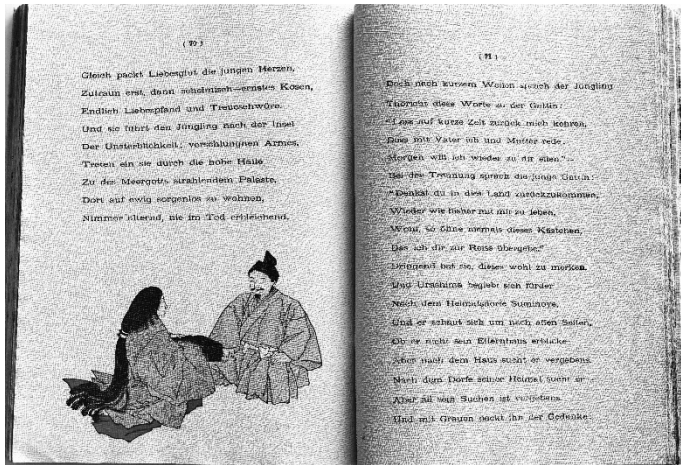 ( 70 )
Gleich packt Liebesglut die jungen Herzen,
Zutraun erst, dann schelmisch-ernstes Kosen,
Endlich Liebespfand und Treueschwüre.
Und sie führt den Jüngling nach der Insel
Der Unsterblichkeit; verschlungnen Armes,
Treten ein sie durch die hohe Halle
Zu des Meergotts strahlendem Palaste,
Dort auf ewig sorgenlos zu wohnen,
Nimmer alternd, nie im Tod erbleichend.
( 71 )
Doch nach kurzem Weilen sprach der Jüngling
Thöricht diese Worte zu der Gattin:
"Lass auf kurze Zeit zurück mich kehren,
Dass mit Vater ich und Mutter rede.
Morgen will ich wieder zu dir eilen."—
Bei der Trennung sprach die junge Gattin:
"Denkst du in dies Land zurückzukommen,
Wieder wie bisher mit mir zu leben,
Wohl, so öffne niemals dieses Kästchen,
Das ich dir zur Reise übergebe."
Dringend bat sie, dieses wohl zu merken.
Und Urashima begiebt sich fürder
Nach dem Heimatsdorfe Suminoye,
Und er schaut sich um nach allen Seiten,
Ob er nicht sein Elternhaus erblicke.
Aber nach dem Haus sucht er vergebens.
Nach dem Dorfe seiner Heimat sucht er
Aber all sein Suchen ist vergebens
Und mit Grauen packt ihn der Gedanke